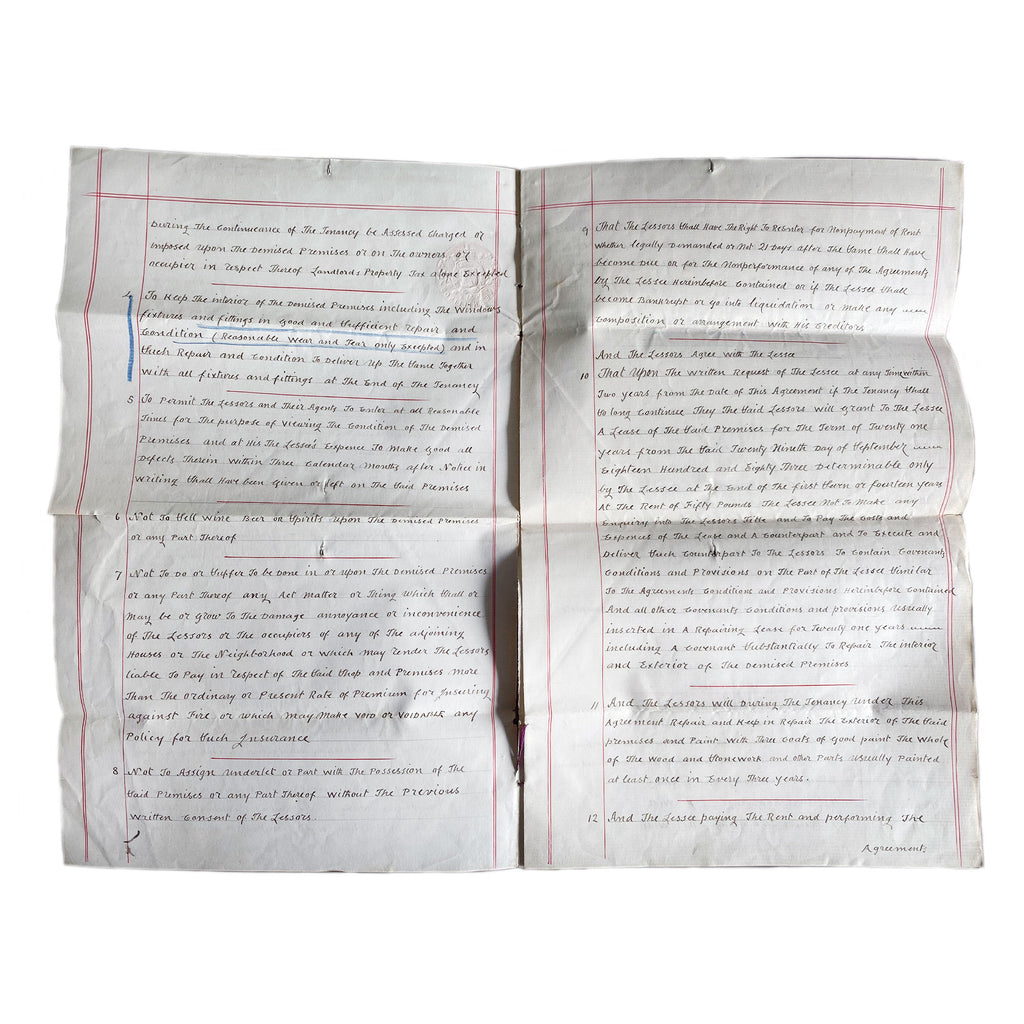 During The Continueance of The Tenancy be Assessed Charged or
imposed upon The Demised Premises or on The owners or
occupier in respect Thereof Landlords Property Tax alone Excepted
4 To Keep The interior of The Demised Premises including The Windows
fixtures and fittings in Good and Sufficient repair and
Condition (Reasonable Wear and Tear only Excepted) and in
Such Repair and Condition To Deliver Up The Same Together
With all fixtures and fittings at The End of The Tenancy
5 To Permit The Lessors and Their Agents To Enter at all Reasonable
Times for The purpose of Viewing The Condition of The Demised
Premises and at His The Lessee's Expence To Make Good all
Defects Therein Within Three Calendar Months after Notice in
Writing Shall Have been Given or left on The Said Premises
6 Not To Sell Wine Beer or Spirits Upon The Demised Premises
or any Part Thereof
7 Not To Do or Suffer To be Done in or upon The Demised Premises
or any Part Thereof any Act Matter or Thing Which Shall or
May be or Grow To The Damage annoyance or inconvenience
of The Lessors or The occupiers of any of The adjoining
Houses or The Neighborhood or Which may render The Lessors
liable To Pay in respect of The Said Shop and Premises More
Than The ordinary or Present Rate of Premium for Insuring
against Fire or which May Make VOID or VOIDABLE any
Policy for Such Insurance
8 Not To Assign Underlet or Part With The Possession of The
Said Premises or any Part Thereof Without The Previous
Written Consent of The Lessors.
9 That The Lessors Shall Have The Right To ReEnter for Nonpayment of Rent
Whether legally Demanded or Not 21 Days after The Same Shall Have
become Due or for The Nonperformance of any of The Agreements
by The Lessee Hereinbefore Contained or if The Lessee Shall
become Bankrupt or Go into liquidation or Make any
Composition or arrangement With His Creditors
And The Lessors Agree With The Lessee
10 That Upon The Written Request of The Lessee at any Time within
Two years from The Date of This Agreement if The Tenancy Shall
So long Continue They The Said Lessors Will Grant To The Lessee
A Lease of The Said Premises for The Term of Twenty one
years from The Said Twenty Ninth Day of September
Eighteen Hundred and Eighty Three Determinable only
by The Lessee at The End of The first Seven or fourteen years
At The Rent of Fifty Pounds The Lessee Not To Make any
Enquiry into The Lessors Title and To Pay The Costs and
Expences of The Lease and A Counterpart and To Execute and
Deliver Such Counterpart To The Lessors To Contain Covenants
Conditions and Provisions on The Part of The Lessee Similar
To The Agreements Conditions and Provisions Hereinbefore Contained
And all other Covenants Conditions and provisions Usually
inserted in A Repairing Lease for Twenty one years
including A Covenant Substantially To Repair The interior
and Exterior of The Demised Premises
11 And The Lessors Will During The Tenancy Under This
Agreement Repair and Keep in Repair The Exterior of The Said
premises and Paint With Three Coats of Good paint The Whole
of The Wood and Stonework and other Parts Usually Painted
at least once in Every Three years.
12 And The Lessee paying The Rent and performing The
Agreements